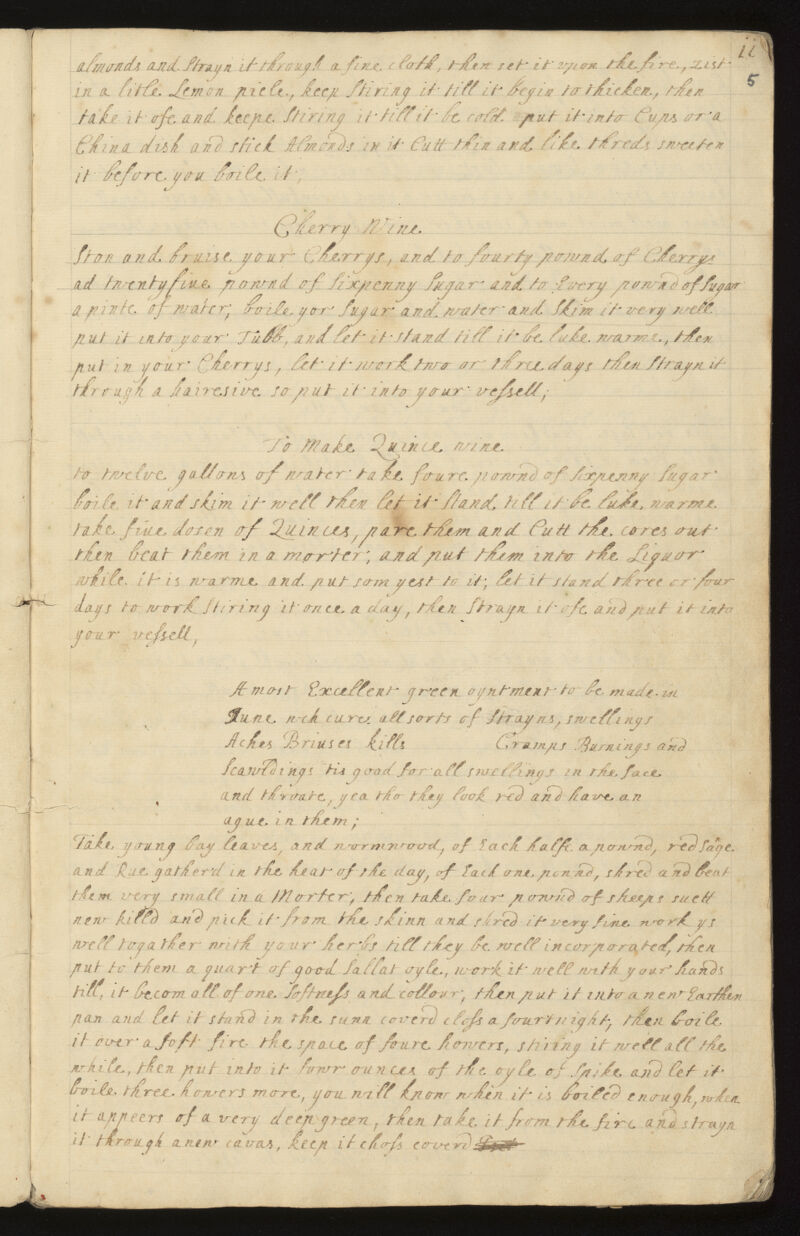 11
5
almonds and Strayn it through a fine cloth, then set it vpon the fire, zist
in a litle Lemon piele, keep Stiring it till it begin to thicken, then
take it ofe and keepe Stiring it till it be cold put it into Cups or a
China dish and stick Almonds in it Cutt thin and like threds sweeten
it before you boile it,
Cherry Wine
Ston and bruise your Cherrys, and to fourty pownd of Cherrys
ad twentyfive pownd of Sixpenny Sugar and to Every pownd of Sugar
a pinte of water, boile yor Sugar and water and Skim it very well
put it into your Tubb, and let it stand till it be luke warme, then
put in your Cherrys, let it work two or three days then Strayn it
through a hairesive so put it into your vessell;
To Make Quince wine
to twelve gallons of water take foure pownd of Sixpenny Sugar
boile it and skim it well then let it Stand till it be luke warme
take five dosen of Quinces, pare them and Cutt the cores out
then beat them in a morter, and put them into the Liquor
while it is warme and put som yest to it, let it stand three or four
days to work Stiring it once a day, then Strayn it ofe and put it into
your vessell,
A most Excellent green oyntment to be made in
June wch cures all sorts of Strayns, swellings
Aches Briuses kills Cramps Burnings and
Scawldings tis good for all swellings in the face
and throate, yea tho they look red and have an
ague in them;
Take young bay leaves, and wormwood, of Each halfe a pownd, red Sage
and Rue gather'd in the heat of the day, of Each one pownd, shred and beat
them very small in a Morter, then take four pownd of sheeps suett
new killd and pick it from the skinn and shred it very fine work ys
well togather with your herbs till they be well incorporated, then
put to them a quart of good Sallat oyle, work it well with your hands
till, it becom all of one Softness and collour, then put it into a new Earthen
pan and let it stand in the sunn coverd closs a fourtnight, then boile
it over a soft fire the space of foure howers, stiring it well all the
while, then put into it fowr ounces of the oyle of Spike and let it
boile three howers more, you will know when it is boiled enough, when
it appeers of a very deep green, then take it from the fire and strayn
it through a new cavas, keep it closs coverd